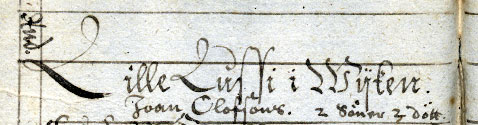 Lille Lussi i Wijken.
Joan Olofsons. 2 Söner 2 dött.